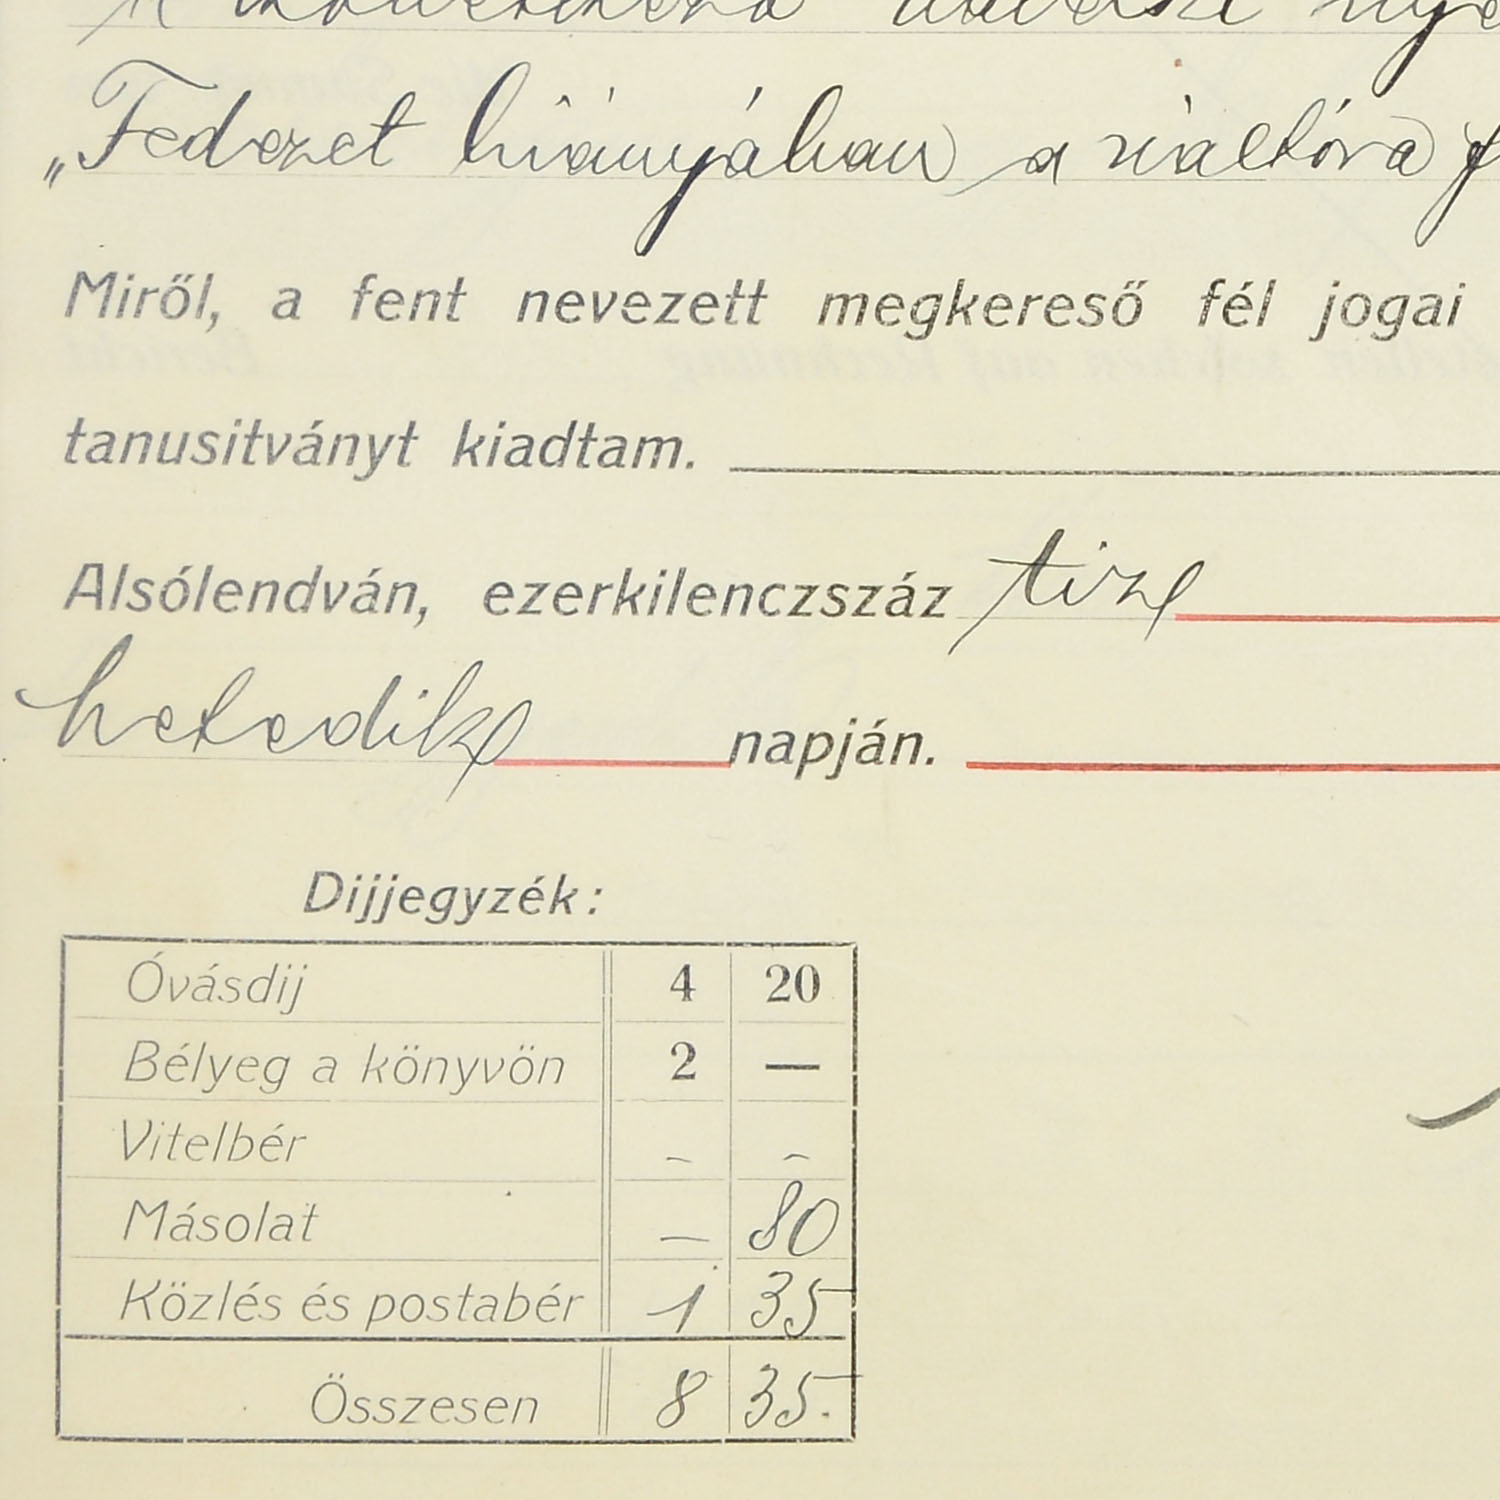 „Fedezet hiányában a váltóra
Miről, a fent nevezett megkereső fél jogai
tanusitványt kiadtam.
Alsólendván, ezerkilenczszáz tize
hetedike napján.
Dijjegyzék:
Óvásdij 4 20
Bélyeg a könyvön 2 —
Vitelbér - -
Másolat — 80
Közlés és postabér 1 35
Összesen 8 35.